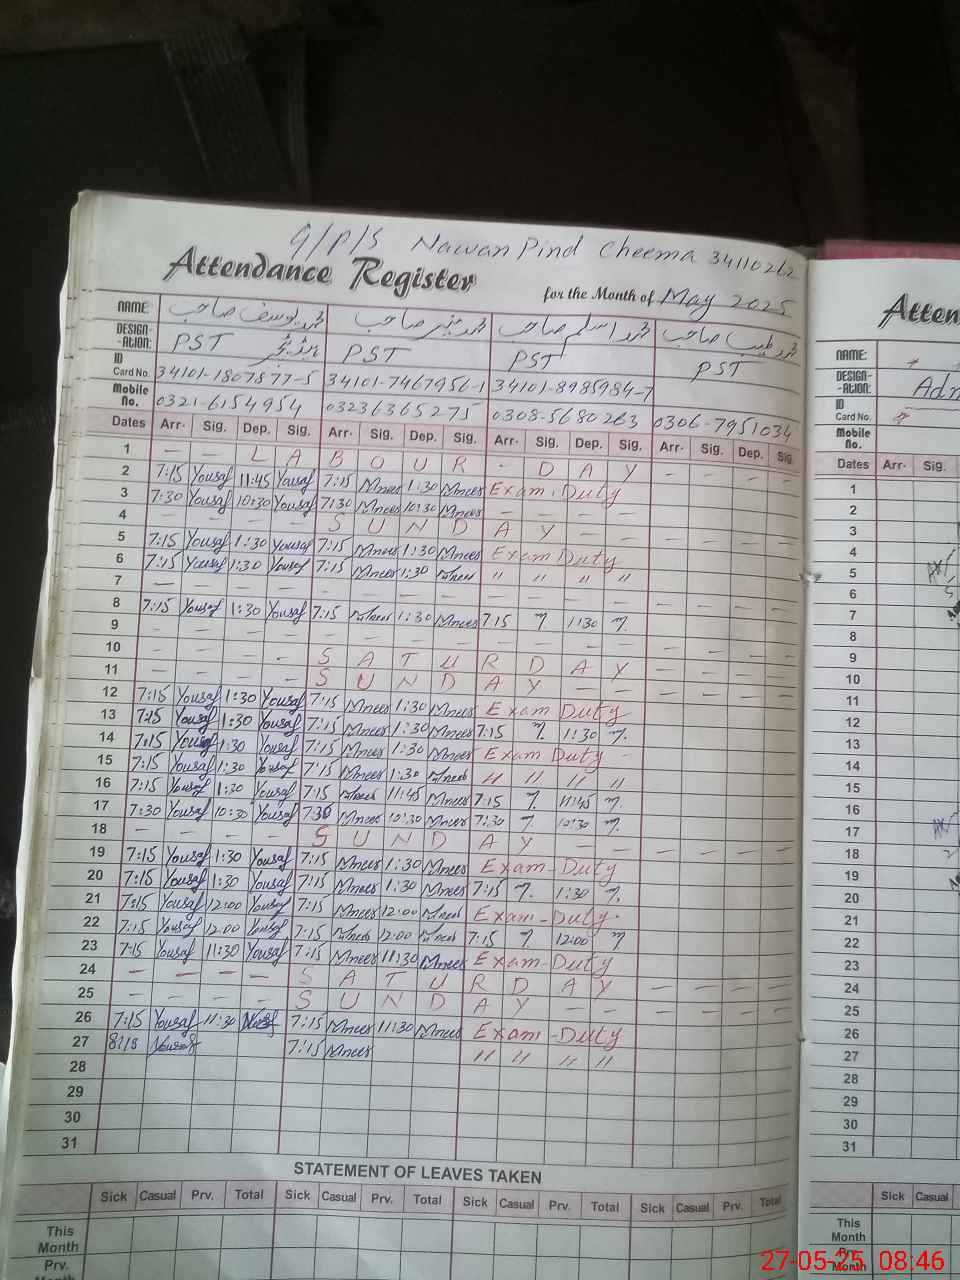 G/P/S Nawan Pind Cheema 34110262
Attendance Register
for the Month of May 2025
NAME: محمد یوسف صاحب محمد منیر صاحب محمد اسلم صاحب محمد طیب صاحب
DESIGN-ATION: PST PST PST PST
ID Card No. 34101-1807877-5 34101-7467956-1 34101-8985984-7
Mobile No. 0321-6154954 03236365275 0308-5680263 0306-7951034
Dates Arr- Sig. Dep. Sig. Arr- Sig. Dep. Sig. Arr- Sig. Dep. Sig. Arr- Sig. Dep. Sig.
1 — — L A B O U R - D A Y - - - -
2 7:15 Yousaf 11:45 Yousaf 7:15 Mneer 1:30 Mneer Exam. Duty
3 7:30 Yousaf 10:30 Yousaf 7:30 Mneer 10:30 Mneer — — — —
4 — — — — S U N D A Y — — — — —
5 7:15 Yousaf 1:30 Yousaf 7:15 Mneer 1:30 Mneer Exam Duty
6 7:15 Yousaf 1:30 Yousaf 7:15 Mneer 1:30 Mneer " " " "
7 — —
8 7:15 Yousaf 1:30 Yousaf 7:15 Mneer 1:30 Mneer 7:15 1:30
9 — — — —
10 — — — - S A T U R D A Y
11 — — — - S U N D A Y — —
12 7:15 Yousaf 1:30 Yousaf 7:15 Mneer 1:30 Mneer Exam Duty
13 7:15 Yousaf 1:30 Yousaf 7:15 Mneer 1:30 Mneer 7:15 11:30
14 7:15 Yousaf 1:30 Yousaf 7:15 Mneer 1:30 Mneer Exam Duty
15 7:15 Yousaf 1:30 Yousaf 7:15 Mneer 1:30 Mneer " " " "
16 7:15 Yousaf 1:30 Yousaf 7:15 Mneer 11:45 Mneer 7:15 11:45
17 7:30 Yousaf 10:30 Yousaf 7:30 Mneer 10:30 Mneer 7:30 10:30
18 — — — — S U N D A Y — — — — —
19 7:15 Yousaf 1:30 Yousaf 7:15 Mneer 1:30 Mneer Exam-Duty
20 7:15 Yousaf 1:30 Yousaf 7:15 Mneer 1:30 Mneer 7:15 1:30
21 7:15 Yousaf 12:00 Yousaf 7:15 Mneer 12:00 Mneer Exam-Duty.
22 7:15 Yousaf 12:00 Yousaf 7:15 Mneer 12:00 Mneer 7:15 12:00
23 7:15 Yousaf 11:30 Yousaf 7:15 Mneer 11:30 Mneer Exam-Duty
24 — — — — S A T U R D A Y — — — —
25 — — — — S U N D A Y — — — — —
26 7:15 Yousaf 11:30 Yousaf 7:15 Mneer 11:30 Mneer Exam-Duty
27 Yousaf 7:15 Mneer " " " "
28
29
30
31
STATEMENT OF LEAVES TAKEN
Sick Casual Prv. Total Sick Casual Prv. Total Sick Casual Prv. Total Sick Casual Prv. Total
This Month
Prv. Month
Atten
NAME:
DESIGN-ATION: Adm
ID Card No.
Mobile No.
Dates Arr- Sig.
1
2
3
4
5
6
7
8
9
10
11
12
13
14
15
16
17
18
19
20
21
22
23
24
25
26
27
28
29
30
31
Sick Casual
This Month
Prv.
27-05-25 08:46